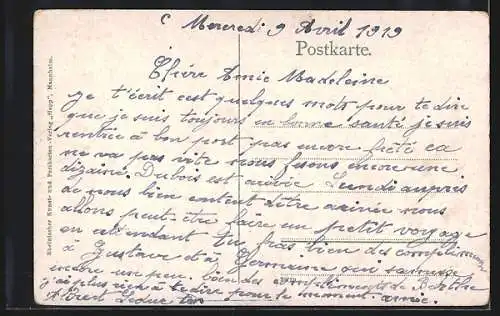 Mercredi 9 Avril 1919
Postkarte.
Chère Amie Madeleine
je t'écrit cest quelques mots pour te dire
que je suis toujours en bonne santé je suis
rentrée à bon port pas encore ca
ne va pas vite nous fesons encore une
dizaine. Dubois est arrivée Lundi aupres
de nous bien content d'être arrivée nous
allons peut être faire un petit voyage
en attendant tu fras bien des compliments
à Gustave et à Germaine qui
encore un peu. bien des compliments de Berthe
j'ai plus rien à te dire pour le moment. amie.
Leduc
Rheinischer Kunst- und Postkarten-Verlag „Hepp", Mannheim.